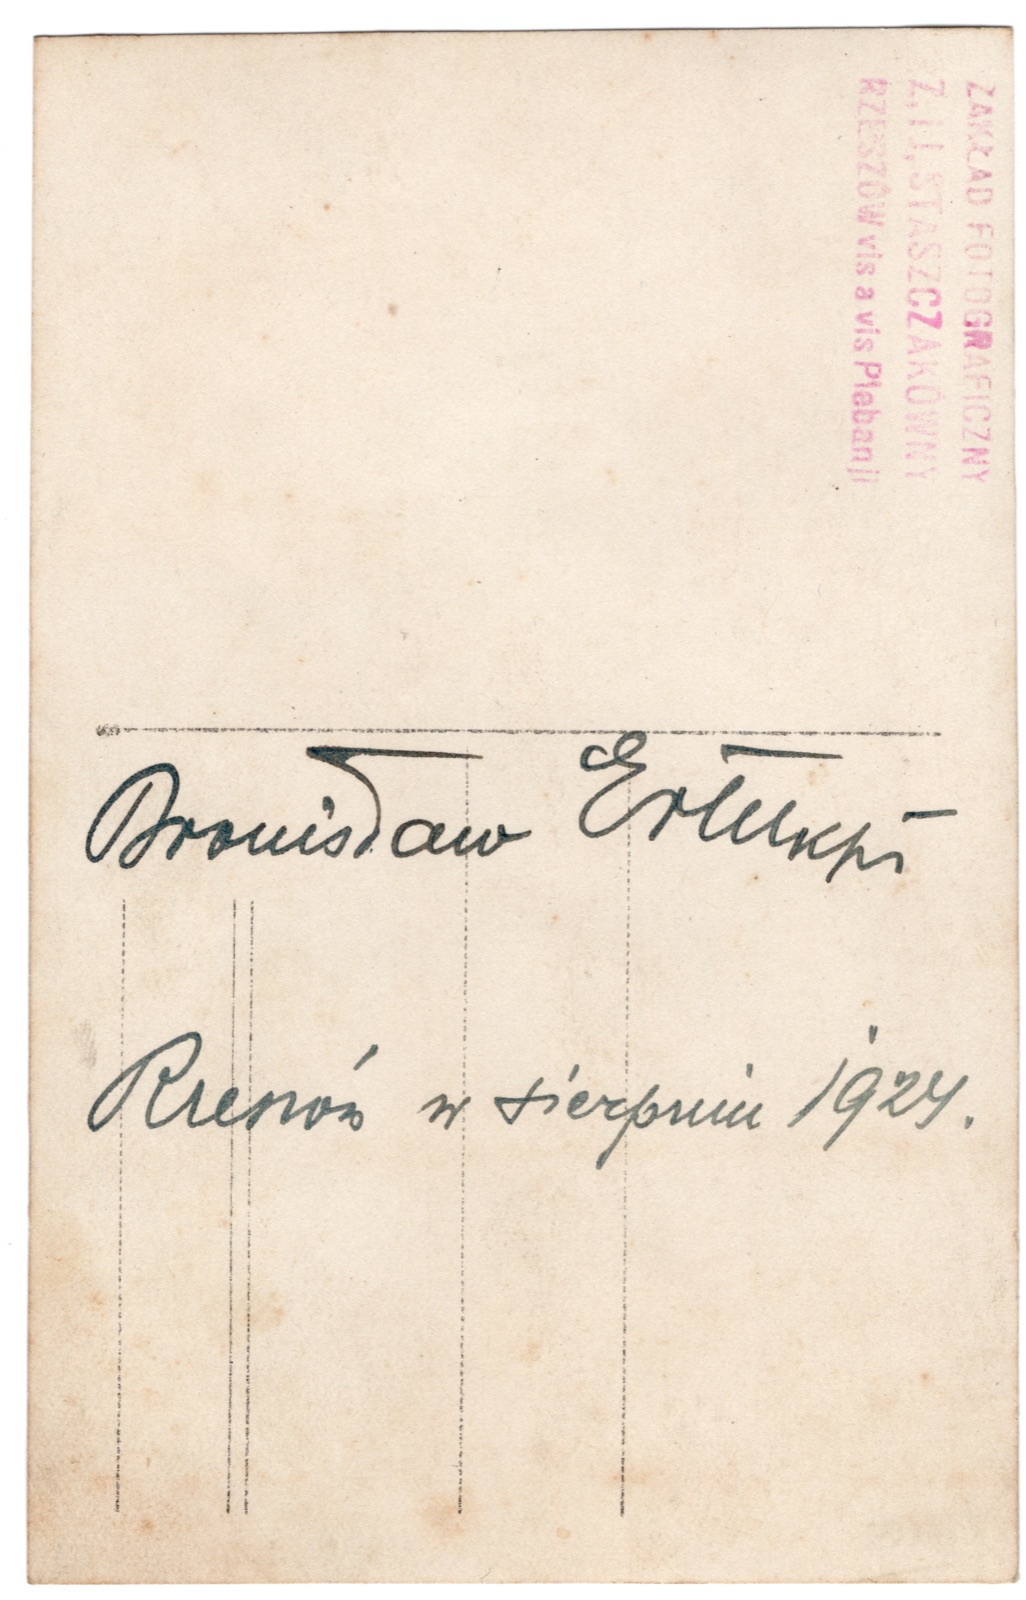 ZAKŁAD FOTOGRAFICZNY
Z. i J. STASZCZAKÓWNY
RZESZÓW vis a vis Plebanji
Bronisław
Rzeszów w sierpniu 1924.